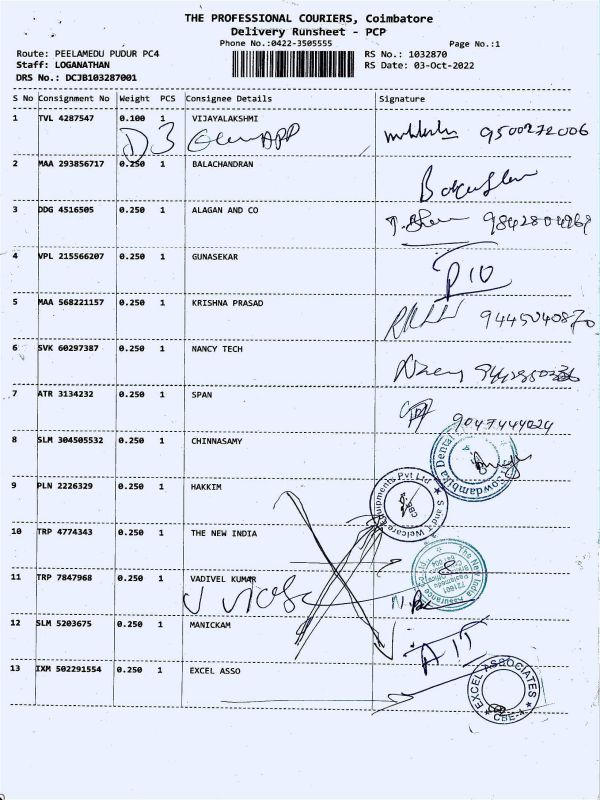 THE PROFESSIONAL COURIERS, Coimbatore
Delivery Runsheet - PCP
Phone No.:0422-3505555 Page No.:1
Route: PEELAMEDU PUDUR PC4 RS No.: 1032870
Staff: LOGANATHAN RS Date: 03-Oct-2022
DRS No.: DCJB103287001
S No Consignment No Weight PCS Consignee Details Signature
1 TVL 4287547 0.100 1 VIJAYALAKSHMI
9500272006
2 MAA 293856717 0.250 1 BALACHANDRAN
3 DDG 4516505 0.250 1 ALAGAN AND CO
4 VPL 215566207 0.250 1 GUNASEKAR
5 MAA 568221157 0.250 1 KRISHNA PRASAD
9445040870
6 SVK 60297387 0.250 1 NANCY TECH
7 ATR 3134232 0.250 1 SPAN
9047444024
8 SLM 304505532 0.250 1 CHINNASAMY
9 PLN 2226329 0.250 1 HAKKIM
10 TRP 4774343 0.250 1 THE NEW INDIA
11 TRP 7847968 0.250 1 VADIVEL KUMAR
12 SLM 5203675 0.250 1 MANICKAM
13 IXM 502291554 0.250 1 EXCEL ASSO
EXCEL ASSOCIATES
CBE